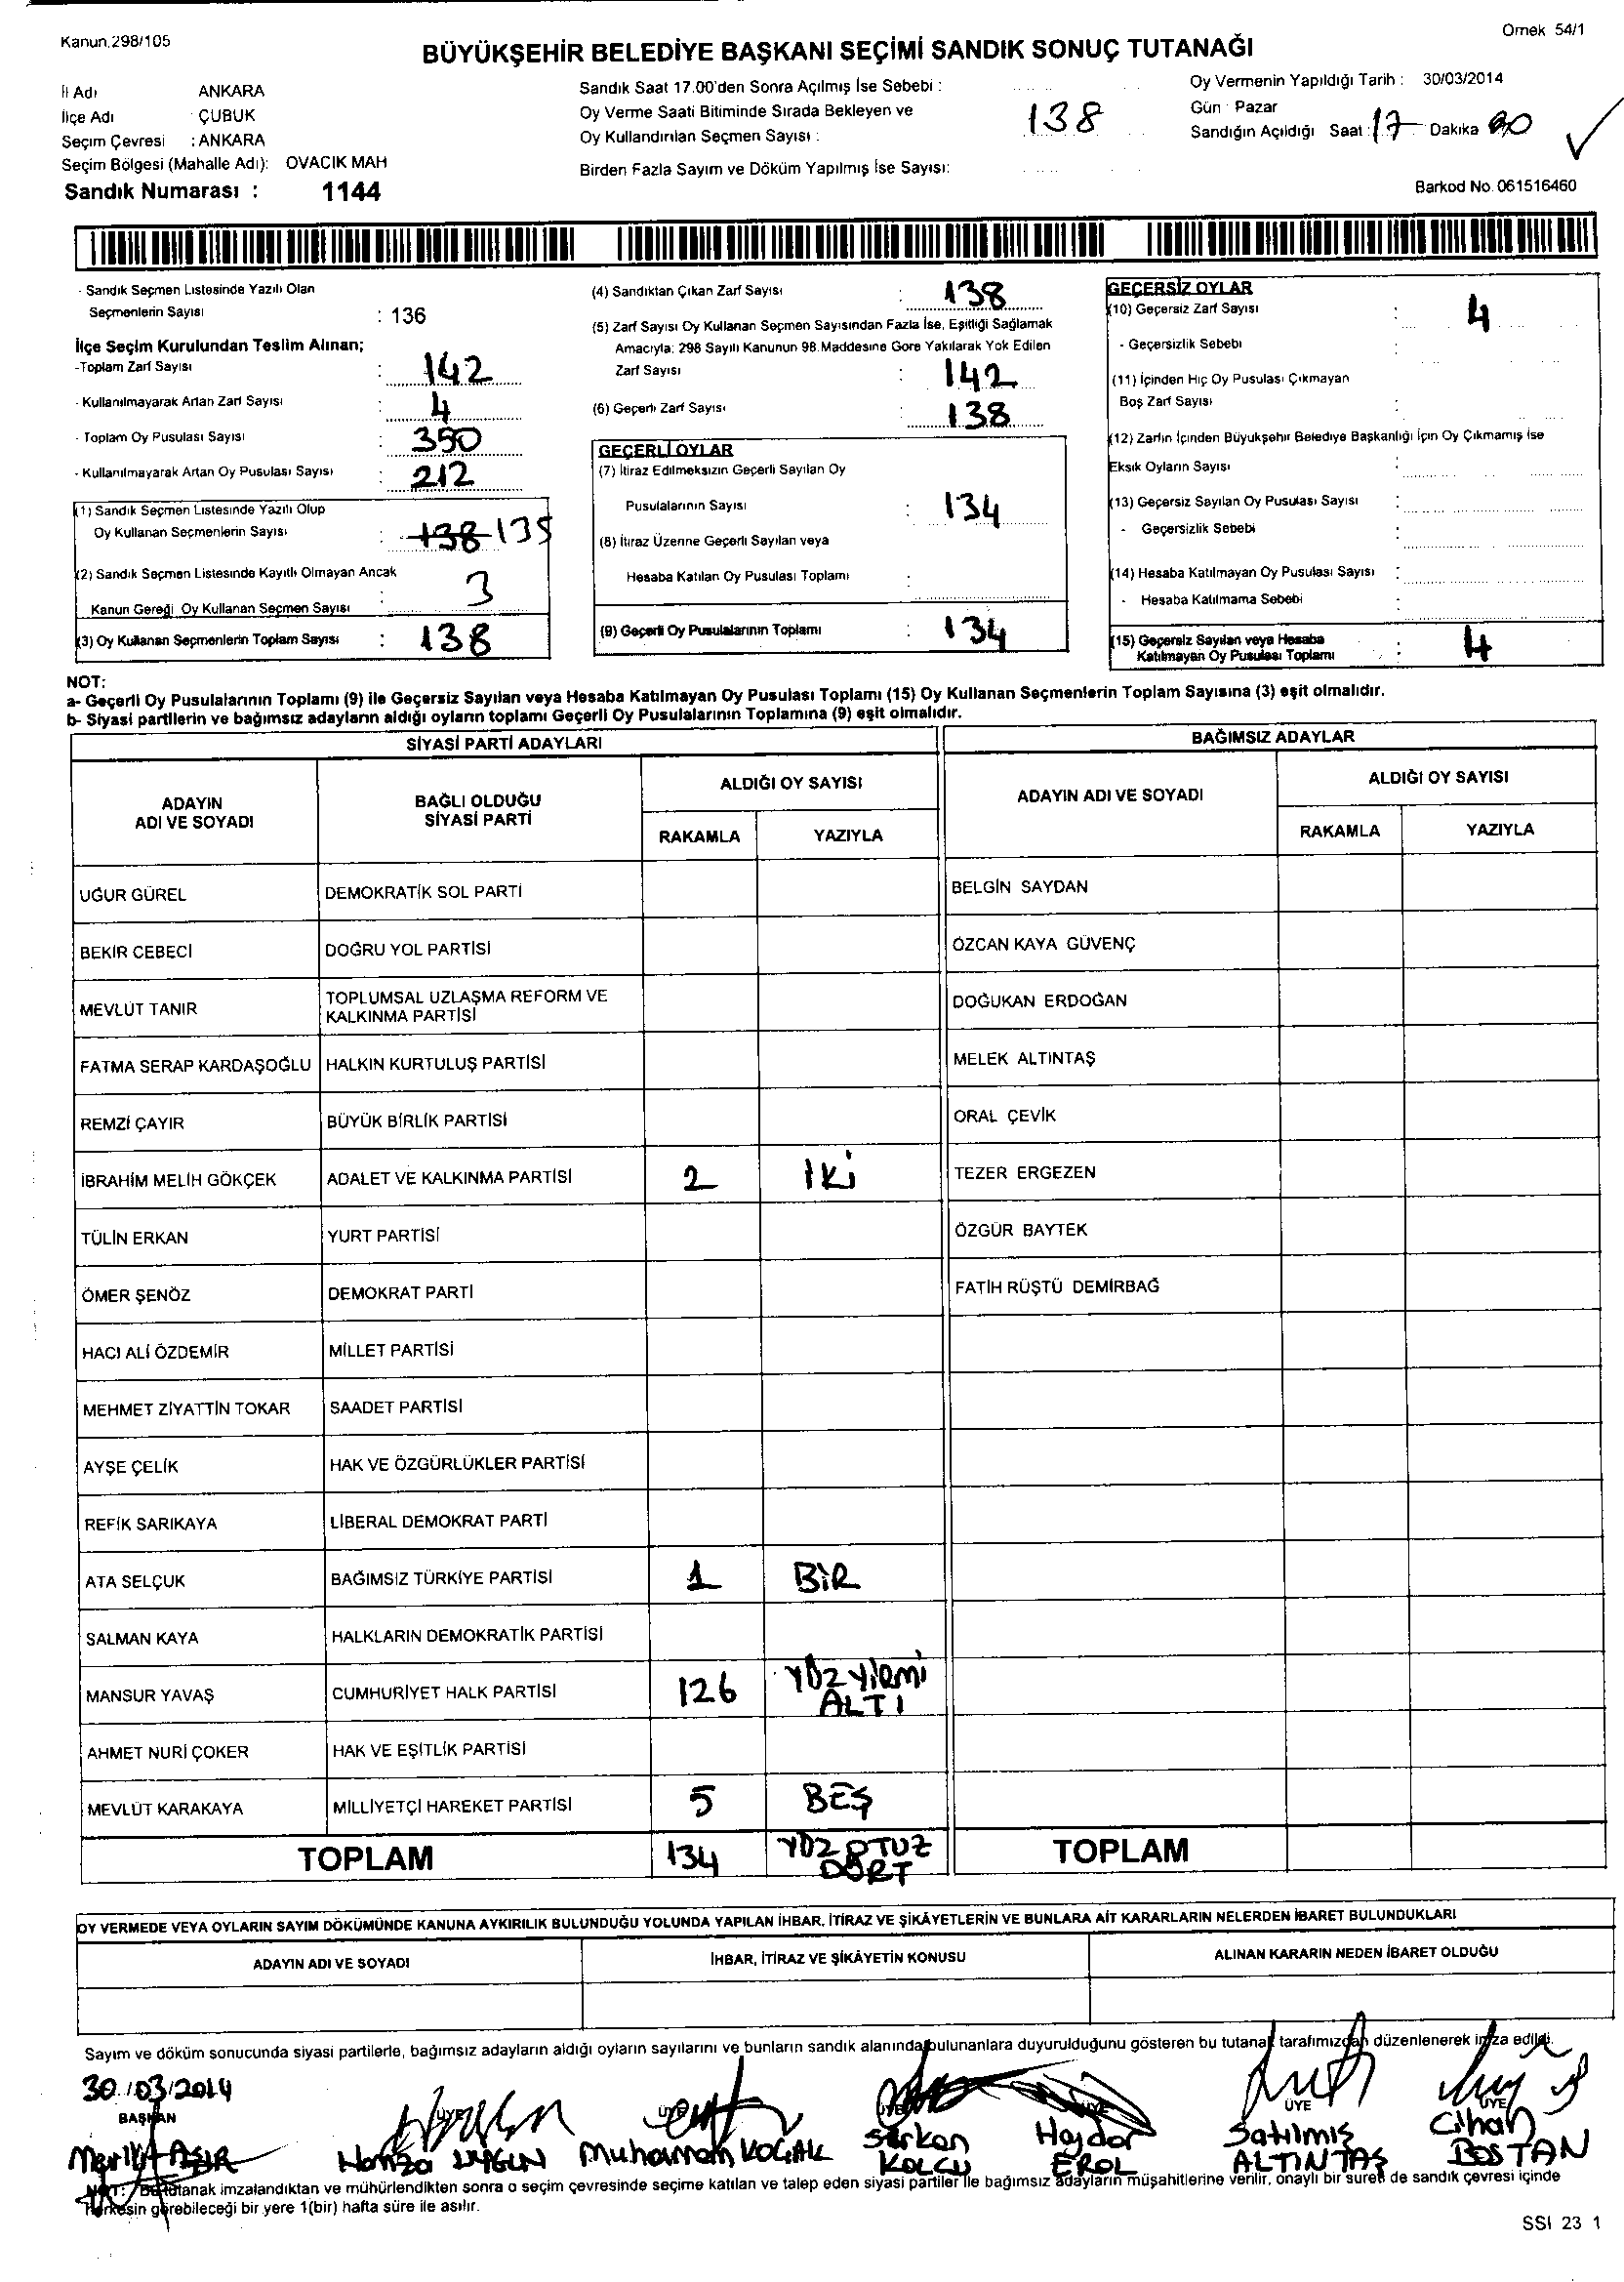 Kanun.298/105
Örnek 54/1
BÜYÜKŞEHİR BELEDİYE BAŞKANI SEÇİMİ SANDIK SONUÇ TUTANAĞI
İl Adı ANKARA
İlçe Adı ÇUBUK
Seçim Çevresi : ANKARA
Seçim Bölgesi (Mahalle Adı): OVACIK MAH
Sandık Numarası : 1144
Sandık Saat 17.00'den Sonra Açılmış İse Sebebi :
Oy Verme Saati Bitiminde Sırada Bekleyen ve
Oy Kullandırılan Seçmen Sayısı : 138
Birden Fazla Sayım ve Döküm Yapılmış İse Sayısı:
Oy Vermenin Yapıldığı Tarih : 30/03/2014
Gün : Pazar
Sandığın Açıldığı Saat : 17 Dakika
Barkod No. 061516460
- Sandık Seçmen Listesinde Yazılı Olan
Seçmenlerin Sayısı : 136
İlçe Seçim Kurulundan Teslim Alınan;
-Toplam Zarf Sayısı : 142
- Kullanılmayarak Artan Zarf Sayısı : 4
- Toplam Oy Pusulası Sayısı : 350
- Kullanılmayarak Artan Oy Pusulası Sayısı : 212
(1) Sandık Seçmen Listesinde Yazılı Olup
Oy Kullanan Seçmenlerin Sayısı : 138 135
(2) Sandık Seçmen Listesinde Kayıtlı Olmayan Ancak
Kanun Gereği Oy Kullanan Seçmen Sayısı : 3
(3) Oy Kullanan Seçmenlerin Toplam Sayısı : 138
(4) Sandıktan Çıkan Zarf Sayısı : 138
(5) Zarf Sayısı Oy Kullanan Seçmen Sayısından Fazla İse, Eşitliği Sağlamak
Amacıyla: 298 Sayılı Kanunun 98.Maddesine Göre Yakılarak Yok Edilen
Zarf Sayısı : 142
(6) Geçerli Zarf Sayısı : 138
GEÇERLİ OYLAR
(7) İtiraz Edilmeksizin Geçerli Sayılan Oy
Pusulalarının Sayısı : 134
(8) İtiraz Üzerine Geçerli Sayılan veya
Hesaba Katılan Oy Pusulası Toplamı :
(9) Geçerli Oy Pusulalarının Toplamı : 134
GEÇERSİZ OYLAR
(10) Geçersiz Zarf Sayısı : 4
- Geçersizlik Sebebi :
(11) İçinden Hiç Oy Pusulası Çıkmayan
Boş Zarf Sayısı :
(12) Zarfın İçinden Büyükşehir Belediye Başkanlığı İçin Oy Çıkmamış İse
Eksik Oyların Sayısı :
(13) Geçersiz Sayılan Oy Pusulası Sayısı :
- Geçersizlik Sebebi :
(14) Hesaba Katılmayan Oy Pusulası Sayısı :
- Hesaba Katılmama Sebebi :
(15) Geçersiz Sayılan veya Hesaba
Katılmayan Oy Pusulası Toplamı : 4
NOT:
a- Geçerli Oy Pusulalarının Toplamı (9) ile Geçersiz Sayılan veya Hesaba Katılmayan Oy Pusulası Toplamı (15) Oy Kullanan Seçmenlerin Toplam Sayısına (3) eşit olmalıdır.
b- Siyasi partilerin ve bağımsız adayların aldığı oyların toplamı Geçerli Oy Pusulalarının Toplamına (9) eşit olmalıdır.
SİYASİ PARTİ ADAYLARI
BAĞIMSIZ ADAYLAR
ADAYIN
ADI VE SOYADI
BAĞLI OLDUĞU
SİYASİ PARTİ
ALDIĞI OY SAYISI
RAKAMLA YAZIYLA
ADAYIN ADI VE SOYADI
ALDIĞI OY SAYISI
RAKAMLA YAZIYLA
UĞUR GÜREL DEMOKRATİK SOL PARTİ BELGİN SAYDAN
BEKİR CEBECİ DOĞRU YOL PARTİSİ ÖZCAN KAYA GÜVENÇ
MEVLÜT TANIR TOPLUMSAL UZLAŞMA REFORM VE
KALKINMA PARTİSİ DOĞUKAN ERDOĞAN
FATMA SERAP KARDAŞOĞLU HALKIN KURTULUŞ PARTİSİ MELEK ALTINTAŞ
REMZİ ÇAYIR BÜYÜK BİRLİK PARTİSİ ORAL ÇEVİK
İBRAHİM MELİH GÖKÇEK ADALET VE KALKINMA PARTİSİ 2 İKİ TEZER ERGEZEN
TÜLİN ERKAN YURT PARTİSİ ÖZGÜR BAYTEK
ÖMER ŞENÖZ DEMOKRAT PARTİ FATİH RÜŞTÜ DEMİRBAĞ
HACI ALİ ÖZDEMİR MİLLET PARTİSİ
MEHMET ZİYATTİN TOKAR SAADET PARTİSİ
AYŞE ÇELİK HAK VE ÖZGÜRLÜKLER PARTİSİ
REFİK SARIKAYA LİBERAL DEMOKRAT PARTİ
ATA SELÇUK BAĞIMSIZ TÜRKİYE PARTİSİ 1 BİR
SALMAN KAYA HALKLARIN DEMOKRATİK PARTİSİ
MANSUR YAVAŞ CUMHURİYET HALK PARTİSİ 126 YÜZ YİRMİ
ALTI
AHMET NURİ ÇOKER HAK VE EŞİTLİK PARTİSİ
MEVLÜT KARAKAYA MİLLİYETÇİ HAREKET PARTİSİ 5 BEŞ
TOPLAM 134 YÜZ OTUZ
DÖRT
TOPLAM
OY VERMEDE VEYA OYLARIN SAYIM DÖKÜMÜNDE KANUNA AYKIRILIK BULUNDUĞU YOLUNDA YAPILAN İHBAR, İTİRAZ VE ŞİKÂYETLERİN VE BUNLARA AİT KARARLARIN NELERDEN İBARET BULUNDUKLARI
ADAYIN ADI VE SOYADI İHBAR, İTİRAZ VE ŞİKÂYETİN KONUSU ALINAN KARARIN NEDEN İBARET OLDUĞU
Sayım ve döküm sonucunda siyasi partilerle, bağımsız adayların aldığı oyların sayılarını ve bunların sandık alanında bulunanlara duyurulduğunu gösteren bu tutanak tarafımızdan düzenlenerek imza edildi.
30/03/2014
BAŞKAN ÜYE ÜYE ÜYE ÜYE ÜYE ÜYE
Hamza UYGUN
Muharrem KOÇAK
Serkan
KOLCU
Haydar
EROL
Satılmış
ALTINTAŞ
Cihan
BOSTAN
NOT: Bu tutanak imzalandıktan ve mühürlendikten sonra o seçim çevresinde seçime katılan ve talep eden siyasi partiler ile bağımsız adayların müşahitlerine verilir, onaylı bir sureti de sandık çevresi içinde
herkesin görebileceği bir yere 1(bir) hafta süre ile asılır.
SSI 23 1